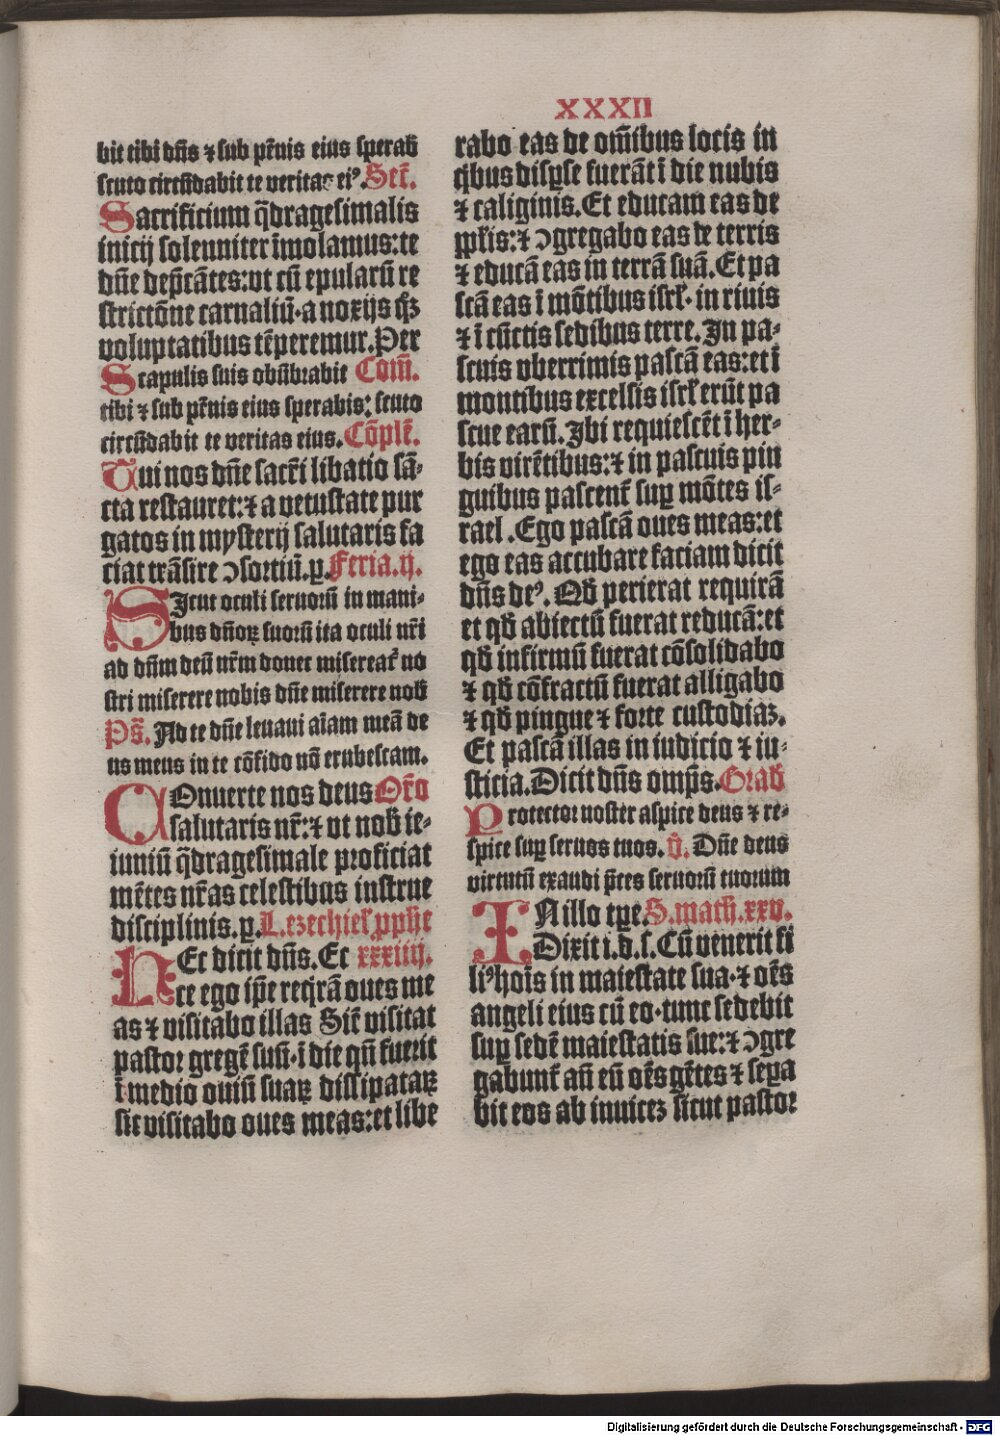 XXXII
bit tibi dñs ⁊ sub pẽnis eius sperab̃
scuto circũdabit te veritas eiꝰ. Secr̃.
Sacrificium q̃dragesimalis
inicij solenniter ĩmolamus: te
dñe dep̃cãtes: vt cũ epularũ re
strictõne carnaliũ· a noxijs q̃ꝫ
voluptatibus tẽperemur. Per
Scapulis suis obũbrabit Com̃.
tibi ⁊ sub pẽnis eius sperabis: scuto
circũdabit te veritas eius. Cõpleñ.
Tui nos dñe sacr̃i libatio sã-
cta restauret: ⁊ a vetustate pur
gatos in mysterij salutaris fa
ciat trãsire ↄsortiũ. ꝑ. Feria. ij.
Sicut oculi seruorũ in mani-
bus dñorꝝ suorũ ita oculi nr̃i
ad dñm deũ nr̃m donec misereat̃ no
stri miserere nobis dñe miserere nob̃
Ps̃. Ad te dñe leuaui aĩam meã de
us meus in te cõfido nõ erubescam.
COnuerte nos deus Or̃o
salutaris nr̃: ⁊ vt nob̃ ie-
iuniũ q̃dragesimale proficiat
mẽtes nr̃as celestibus instrue
disciplinis. ꝑ. L. ezechiel̃ ꝓphe
HEc dicit dñs. Ec xxxiiij.
ce ego ip̃e reqͥrã oues me
as ⁊ visitabo illas Sic̃ visitat
pastor gregẽ suũ· ĩ die qñ fuerit
ĩ medio ouiũ suaꝝ dissipataꝝ
sic visitabo oues meas: et libe
rabo eas de om̃ibus locis in
qͥbus disꝑse fuerãt ĩ die nubis
⁊ caliginis. Et educam eas de
ppl̃is: ⁊ ↄgregabo eas de terris
⁊ educã eas in terrã suã. Et pa
scã eas ĩ mõtibus isrl̃· in riuis
⁊ ĩ cũctis sedibus terre. In pa-
scuis vberrimis pascã eas: et ĩ
montibus excelsis isrl̃ erũt pa
scue earũ. Ibi requiescẽt ĩ her-
bis virẽtibus: ⁊ in pascuis pin
guibus pascent̃ suꝑ mõtes is-
rael. Ego pascã oues meas: et
ego eas accubare faciam dicit
dñs deꝰ. Qd̃ perierat requirã
et qd̃ abiectũ fuerat reducã: et
qd̃ infirmũ fuerat cõsolidabo
⁊ qd̃ cõfractũ fuerat alligabo
⁊ qd̃ pingue ⁊ forte custodiaꝫ.
Et pascã illas in iudicio ⁊ iu-
sticia. Dicit dñs omp̃s. Grad̃
Protector noster aspice deus ⁊ re-
spice suꝑ seruos tuos. v̂. Dñe deus
virtutũ exaudi p̃ces seruorũ tuorum
IN illo tꝑe. S. math̃. xxv.
Dixit i. d. s. Cũ venerit fi
liꝰ hoĩs in maiestate sua· ⁊ oẽs
angeli eius cũ eo· tunc sedebit
suꝑ sedẽ maiestatis sue: ⁊ ↄgre
gabunt̃ añ eũ oẽs gẽtes ⁊ seꝑa
bit eos ab inuiceꝫ sicut pastor
Digitalisierung gefördert durch die Deutsche Forschungsgemeinschaft - DFG